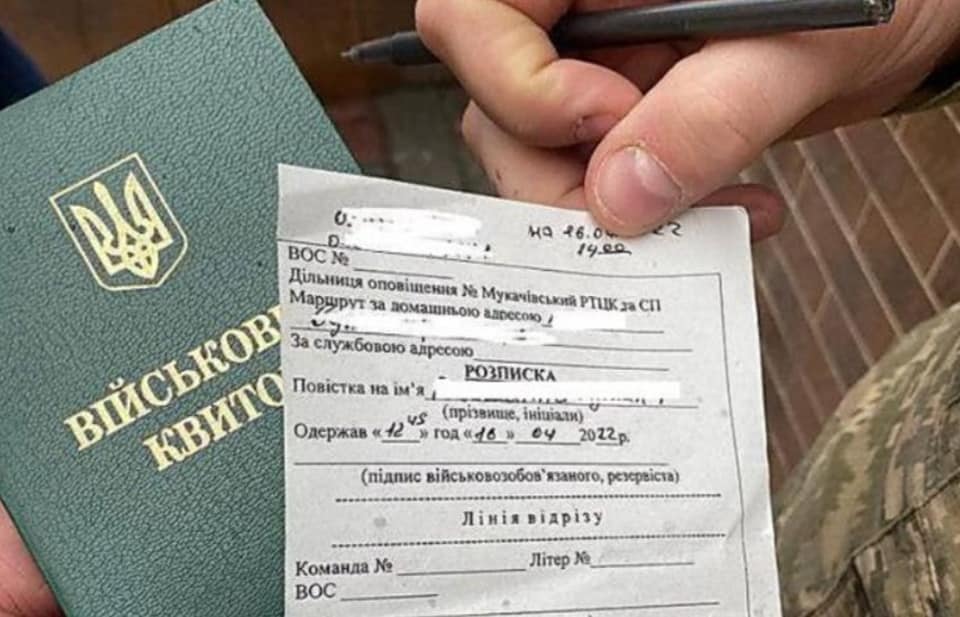 ВІЙСЬКОВ
КВИТО
на 16.04 22
14.00
ВОС №
Дільниця оповіщення № Мукачівський РТЦК да СП
Маршрут за домашньою адресою
За службовою адресою
РОЗПИСКА
Повістка на ім’я
(прізвище, ініціали)
Одержав «12 45» год «16» 04 2022р.
(підпис військовозобов’язаного, резервіста)
Лінія відрізу
Команда № Літер №
ВОС